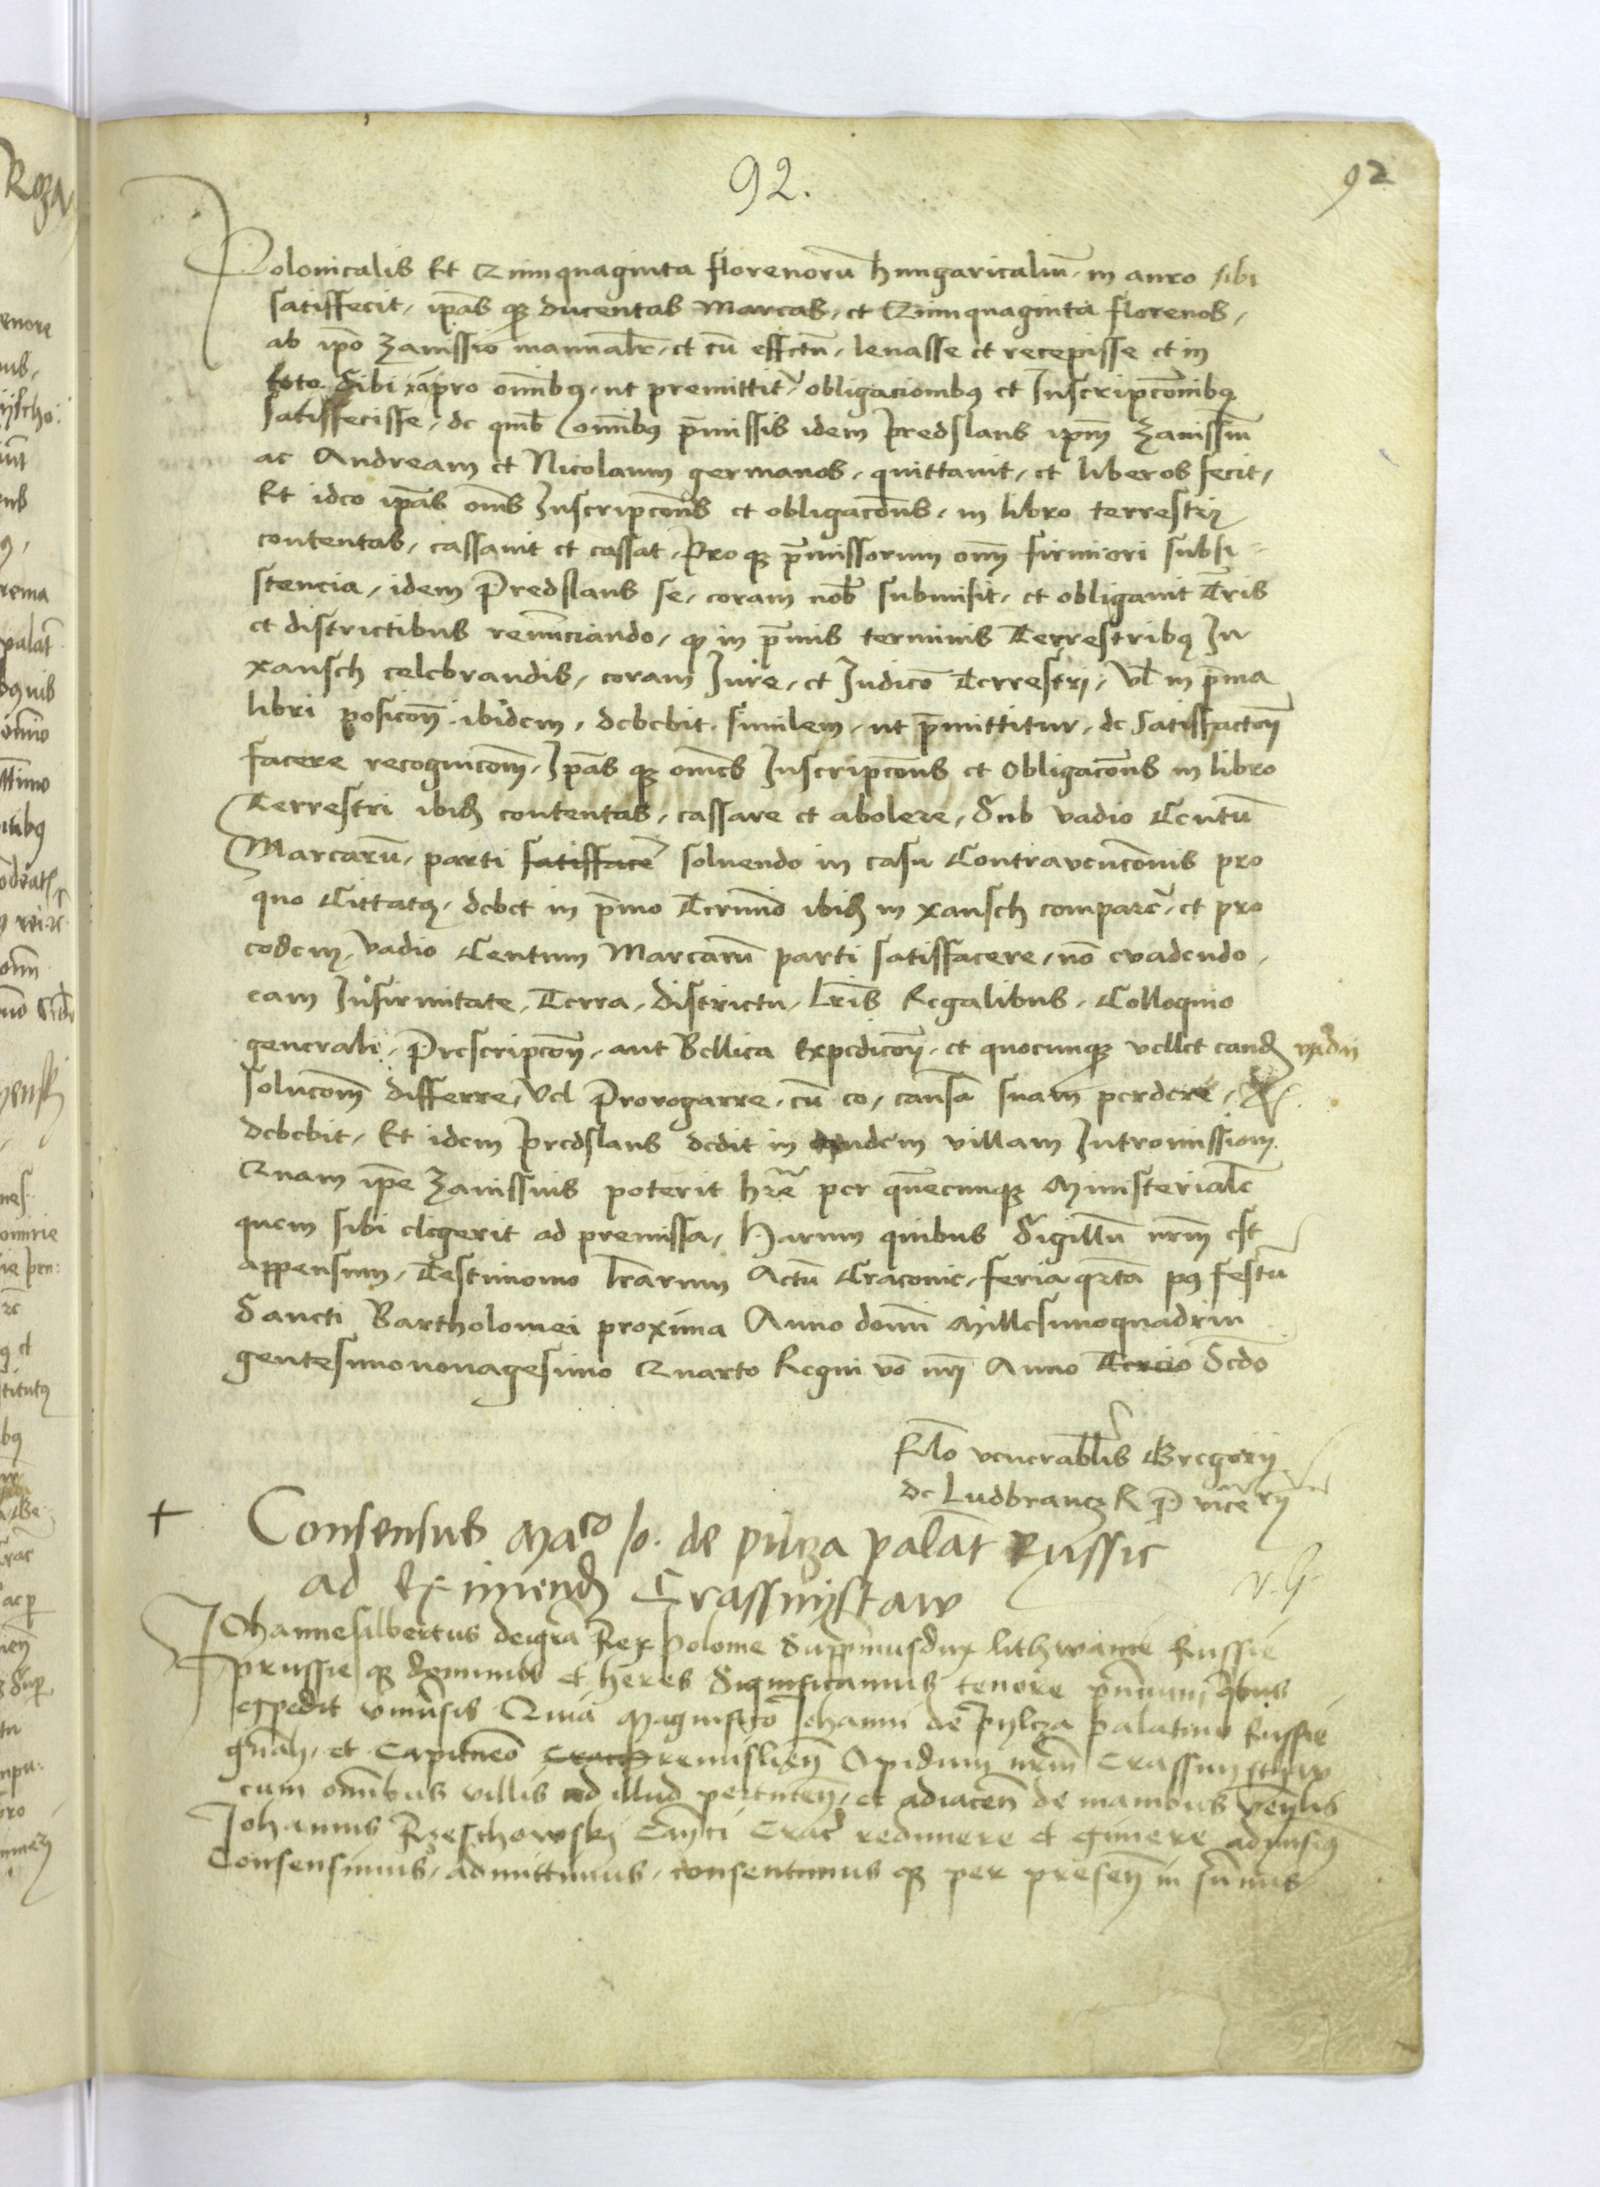 92.
92
Polonicalis Et Quinquaginta florenorū hungaricaliū in auro sibi
satisfecit, ip̄as qȝ ducentas Marcas, et Quinquaginta florenos,
ab ip̄o Zavissio manualr̄, et cū effctū, levasse et recepisse et in
toto Sibi pro om̄ibꝫ, ut premittit᷑ obligacionibꝫ et Inscripc̄onibꝫ
Satisfecisse, de qub̄ om̄ibꝫ p̄missis idem predslaus ip̄m Zavissiū
ac Andream et Nicolaum germanos, quittavit, et liberos fecit,
Et ideo ip̄as om̄s Inscripc̄ons et obligac̄ons, in libro terrestrȝ
contentas, cassavit et cassat, Pro qȝ p̄missorum om̄ firmiori subsi
stencia, idem Predslaus se, coram nob̄ submisit, et obligavit Tr̄is
et districtibus renunciando, qȝ in p̄mis terminis Terrestribꝫ In
xansch celebrandis, coram Jure, et Judicō Terrestri, vl̄ in p̄ma
libri posicōn̄ ibidem, debebit similem, ut p̄mittitur, de satisfactōn̄
facere recognicōm̄, Ip̄as qȝ om̄es Inscripc̄ons et Obligac̄ons in libro
Terrestri ibidȝ contentas, cassare et abolere, Sub vadio Centū
Marcarū, parti satisfacē solvendo in casu Contravenc̄onis pro
quo Cittatꝫ, debet in p̄mo Termīo ibidȝ in xansch comparē, et pro
eodem, vadio Centum Marcarū parti satisfacere, nō evadendo,
eam Infirmitate, Terra, districtu, Lr̄is Regalibus, Colloquio
generali, Prescripcōn̄, aut Bellica Expedicōn̄, et quocunqȝ vellet eandȝ vadii
solucōm̄ differre, vel Prorogarre, cū eo, causā suam perdere,
debebit, Et idem predslaus dedit in eandem villam Intromissiōm
Quam ip̄e Zavissius poterit hr̄e per quēcunqȝ Ministerialē
quem sibi elegerit ad premissa, Harum quibus Sigillū nr̄m est
appensum, Testimonio lr̄arum Actū Cracovie, feria qrtā pꝫ festū
Sancti Bartholomei proxima Anno dom̄ Millesimoquadrin
gentesimononagesimo Quarto Regni vō nr̄i Anno Tercio Scdō
Rlō venerabīlis Gregorii
de Ludbrancz R P vicecn̄ rii
+ Consensus Maco Jo. de pilcza palat̄ Russie
ad Eximendȝ Crassnijstaw
Johannesalbertus deigrā Rex polonie Supremusdux lithwanie Russie
prussie qȝ dominus et heres Significamus tenore pn̄cium quibus
expedit univ̄sis Quia Magnificō Johanni de Pylcza palatino Russie
gn̄ali, et Capitaneō Cracȝ remislien̄ Opidum nr̄m Crassnijstaw
cum om̄ibus villis ad illud pertinen̄, et adiacen̄ de manibus Ven̄lis
Johannis Rzeschowskj Can̄ci Crac̄ redimere et eximere admisimꝫ
Consensimus, admittimus, consentimus qȝ per presen̄